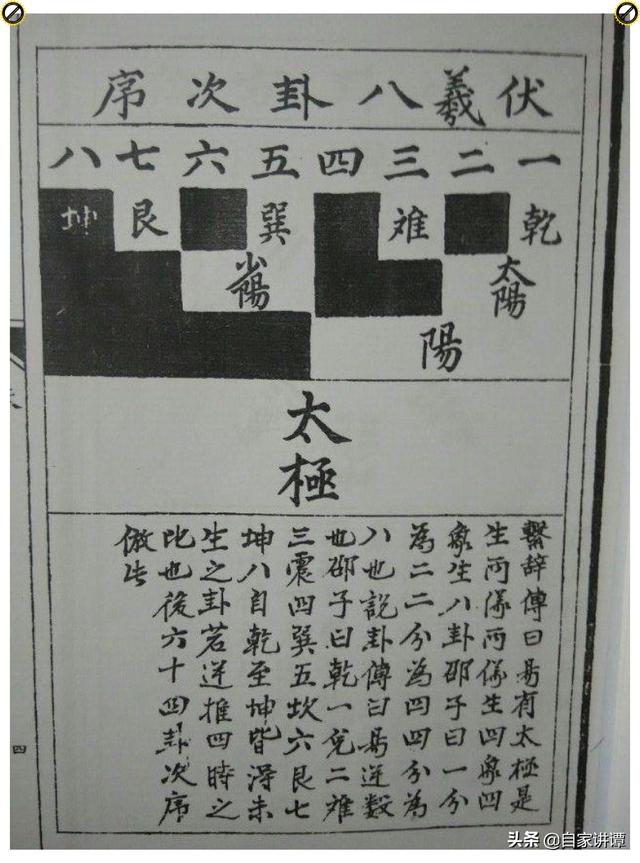 伏羲八卦次序
一二三四五六七八
乾離巽艮坤
太陽
少陽
陽
太極
繫辞傳曰易有太極是
生兩儀兩儀生四象四
象生八卦邵子曰一分
為二二分為四四分為
八也説卦傳曰易逆数
也邵子曰乾一兌二離
三震四巽五坎六艮七
坤八自乾至坤皆得未
生之卦若逆推四時之
比也後六十四卦次序
倣此
四
头条 @自家讲谭